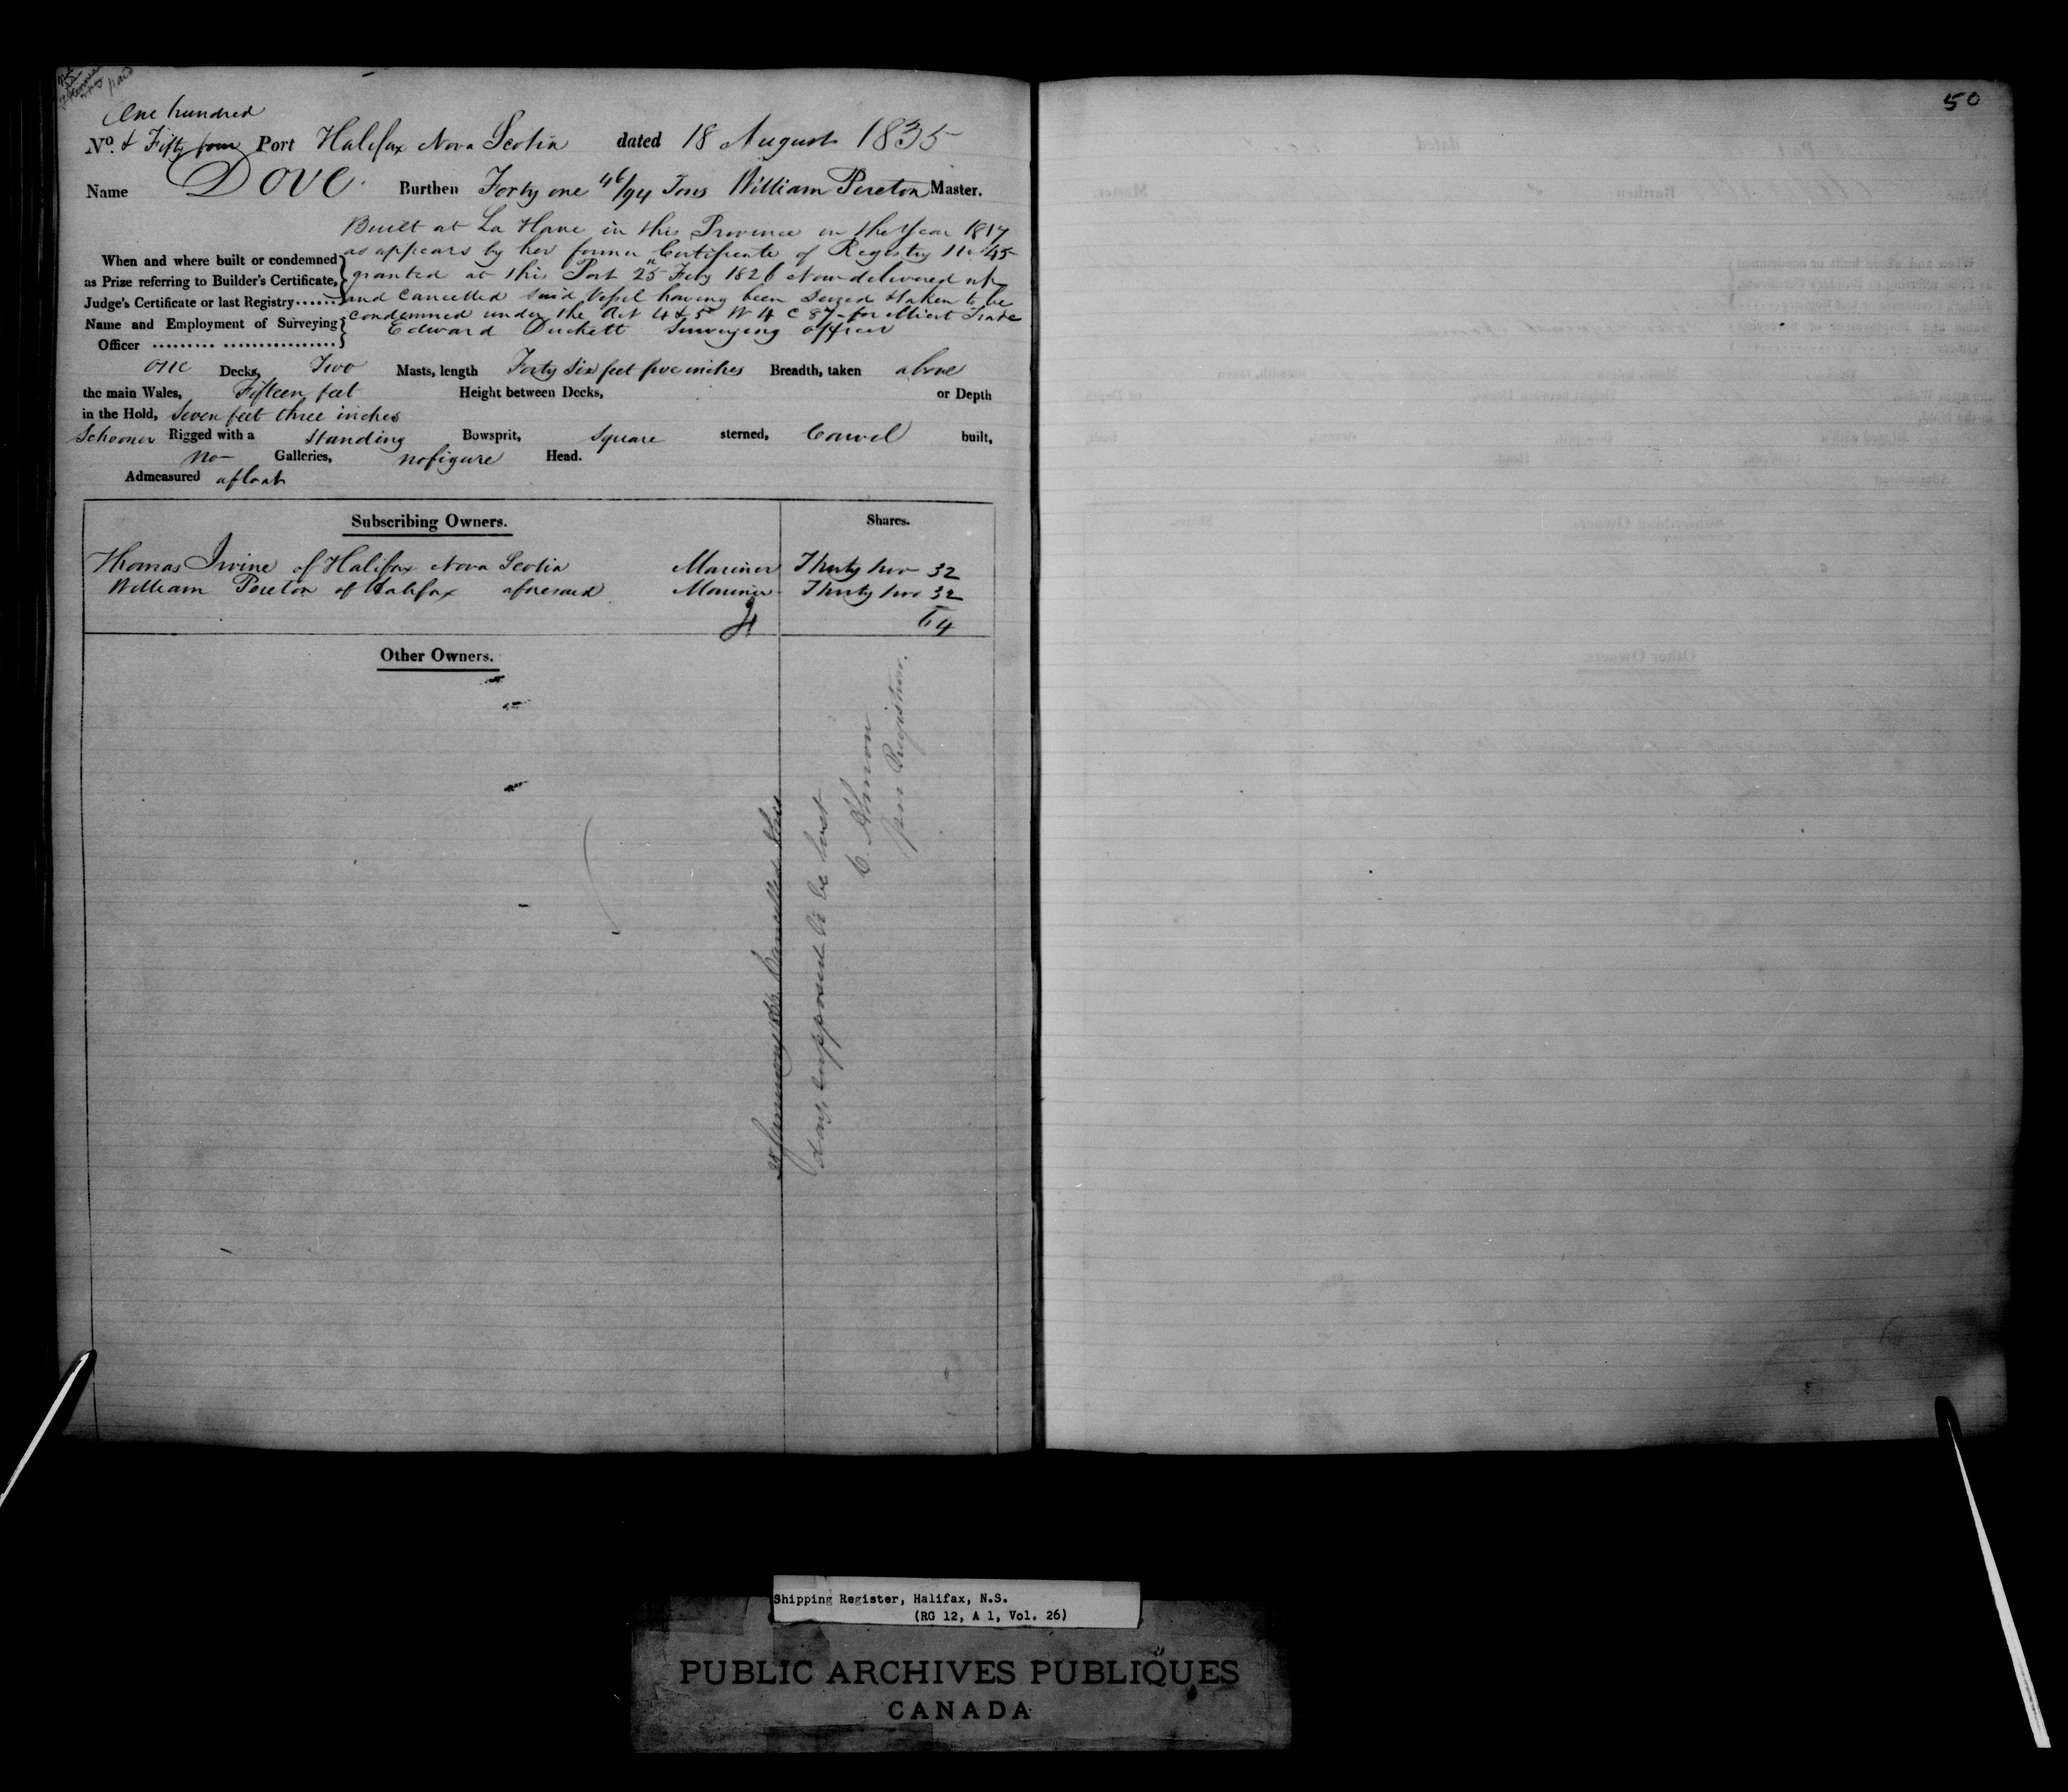 One hundred
No. & Fifty four Port Halifax Nova Scotia dated 18 August 1835
Name Dove Burthen Forty one 46/94 Tons William Pereton Master.
Built at La Have in this Province in the Year 1817
as appears by her former Certificate of Registry No 45
When and where built or condemned
as Prize referring to Builder's Certificate,
Judge's Certificate or last Registry......
granted at this Port 25 Feby 1826 Now delivered up
and Cancelled said Vessel having been seized & taken to be
condemned under the Act 4 & 5 W 4 C 89 for illicit Trade
Name and Employment of Surveying
Officer ......... ................
Edward Duckett Surveying officer
one Decks, Two Masts, length Forty Six feet five inches Breadth, taken above
the main Wales, Fifteen feet Height between Decks, or Depth
in the Hold, Seven feet three inches
Schooner Rigged with a Standing Bowsprit, Square sterned, Carvel built,
no Galleries, no figure Head.
Admeasured afloat
Subscribing Owners. Shares.
Thomas Irvine of Halifax Nova Scotia Mariner Thirty two 32
William Pereton of Halifax aforesaid Mariner Thirty two 32
64
Other Owners.
January Cancelled this
day, supposed to be lost
C. Almon
pro Registrar.
50
Shipping Register, Halifax, N.S.
(RG 12, A 1, Vol. 26)
PUBLIC ARCHIVES PUBLIQUES
CANADA